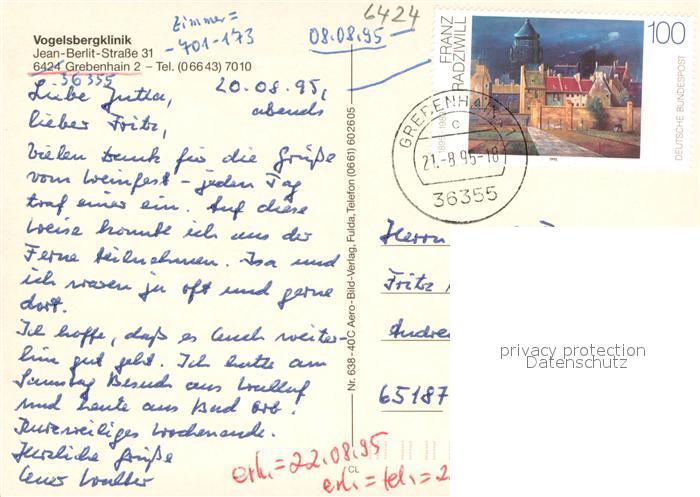 Vogelsbergklinik
Jean-Berlit-Straße 31
6424 Grebenhain 2 – Tel. (0 66 43) 7010
36355
Zimmer=
-701-173
08.08.95
6424
20.08.95,
abends
Liebe Jutta,
lieber Fritz,
vielen Dank für die Grüße
vom Weinfest – jeden Tag
traf einer ein. Auf diese
Weise konnte ich aus der
Ferne teilnehmen. Isa und
ich waren ja oft und gerne
dort.
Ich hoffe, daß es Euch weiter-
hin gut geht. Ich hatte am
Samstag Besuch aus Walluf
und heute aus Bad Orb!
Kurzweiliges Wochenende.
Herzliche Grüße
Euer Walter
Nr. 638 - 40C Aero-Bild-Verlag, Fulda, Telefon (0661) 6028605
CL
FRANZ
RADZIWILL
100
DEUTSCHE BUNDESPOST
GREBENHAIN 1
c
21.-8.95-18
36355
Herrn
Fritz
65187
privacy protection
Datenschutz
erh.=22.08.95
erh.=tel.=2